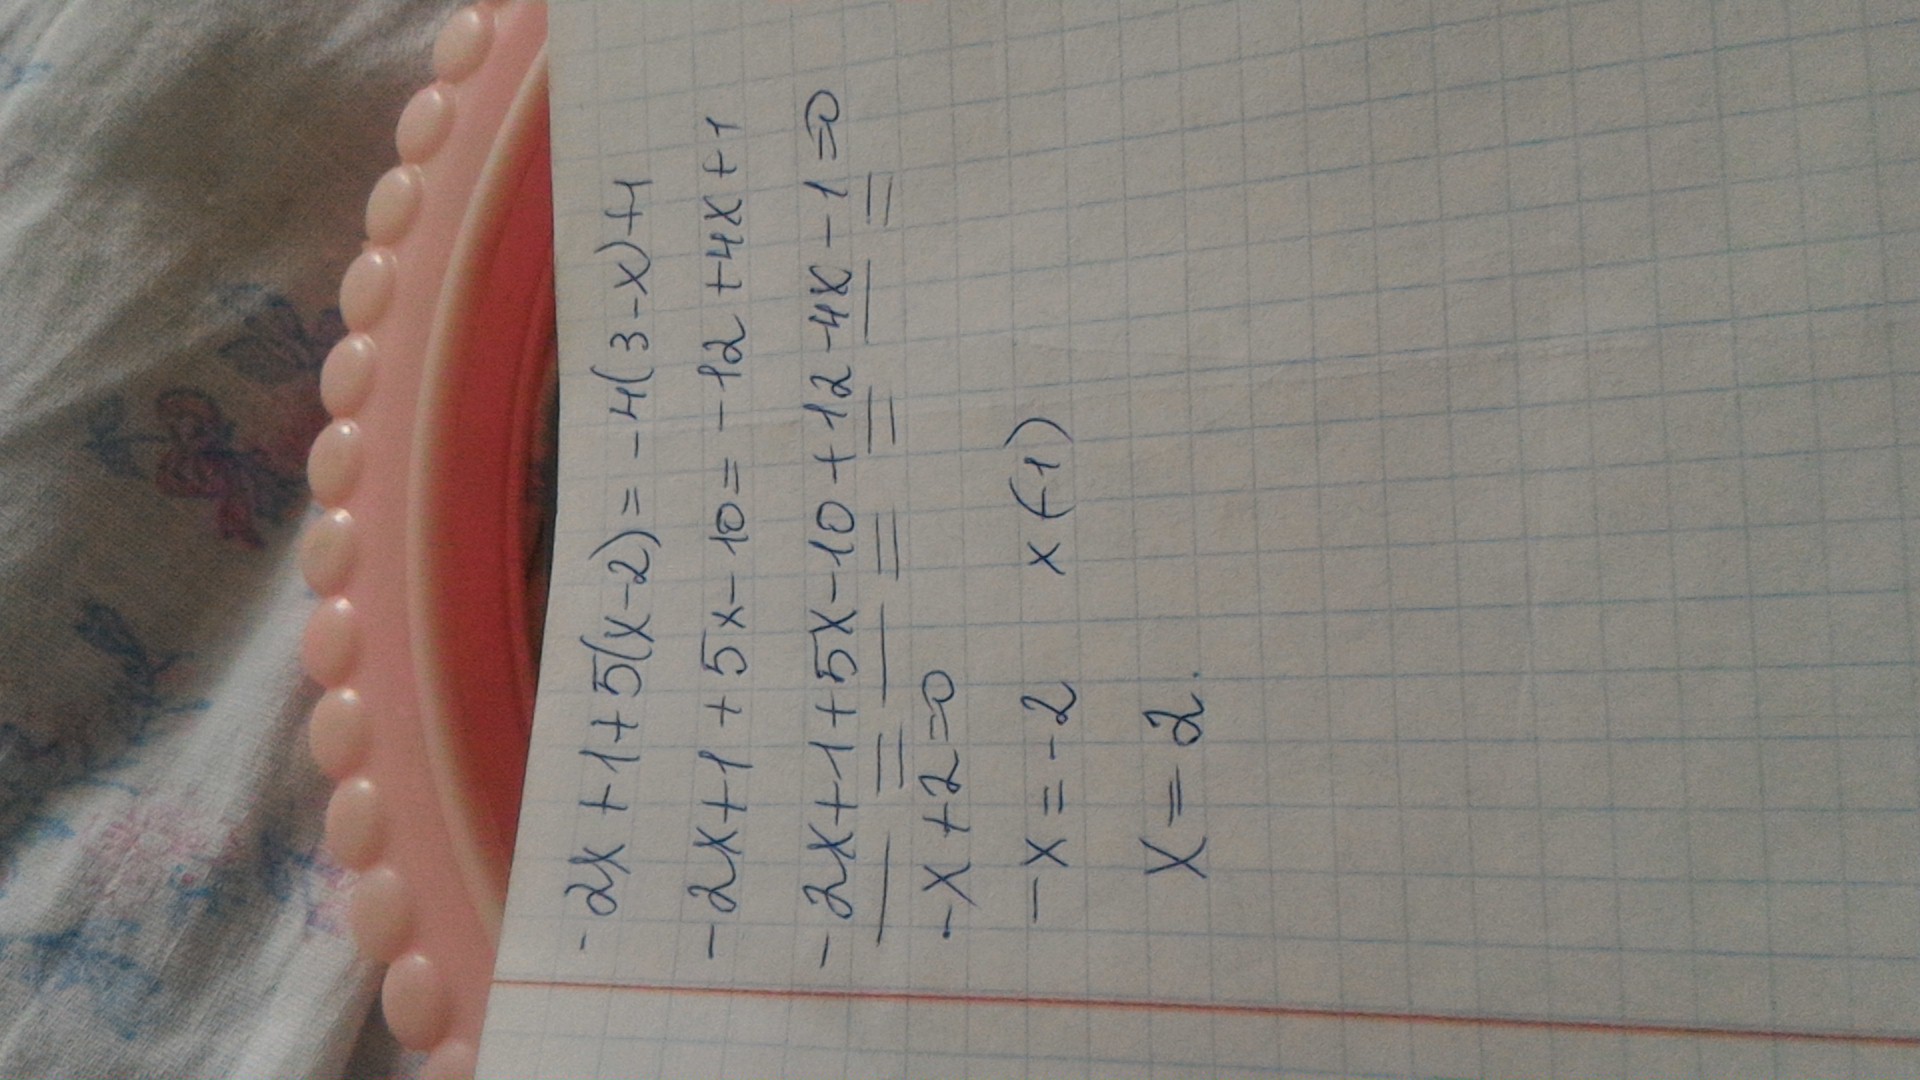 -2x+1+5(x-2)=-4(3-x)+1
-2x+1+5x-10=-12+4x+1
-2x+1+5x-10+12-4x-1=0
-x+2=0
-x=-2 x(-1)
x=2.